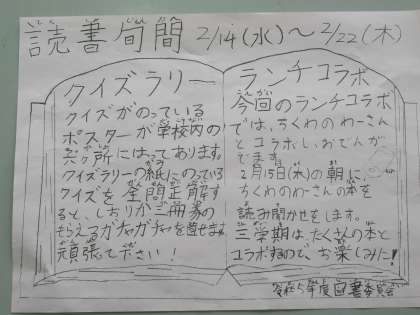 読書旬間 2/14(水)～2/22(木)
クイズラリー
クイズがのっている
ポスターが学校内の
五ヶ所にはってあります。
クイズラリーの紙にのっている
クイズを全問正解す
ると、しおりか三冊券の
もらえるガチャガチャを回せます。
頑張て下さい！
ランチコラボ
今回のランチコラボ
では、ちくわのわーさん
とコラボし、おでんが
でます。
2月15日(木)の朝に、
ちくわのわーさんの本を
読み聞かせをします。
三学期はたくさんの本と
コラボするので、お楽しみに！
令和5年度図書委員会